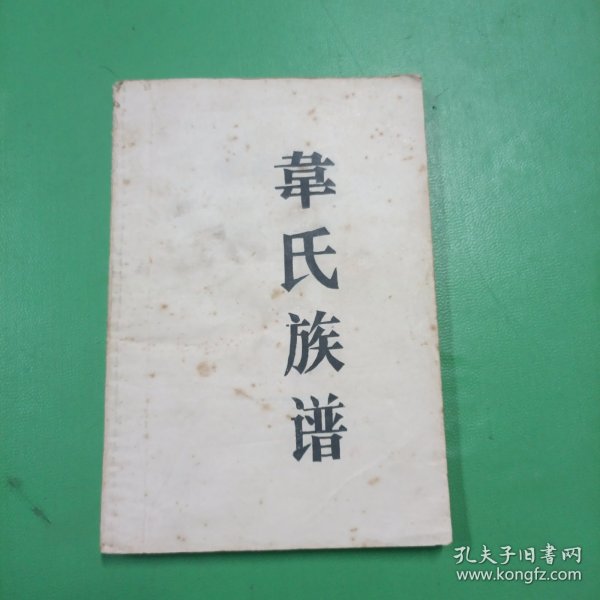 韋氏族谱
孔夫子旧書网
www.kongfz.com